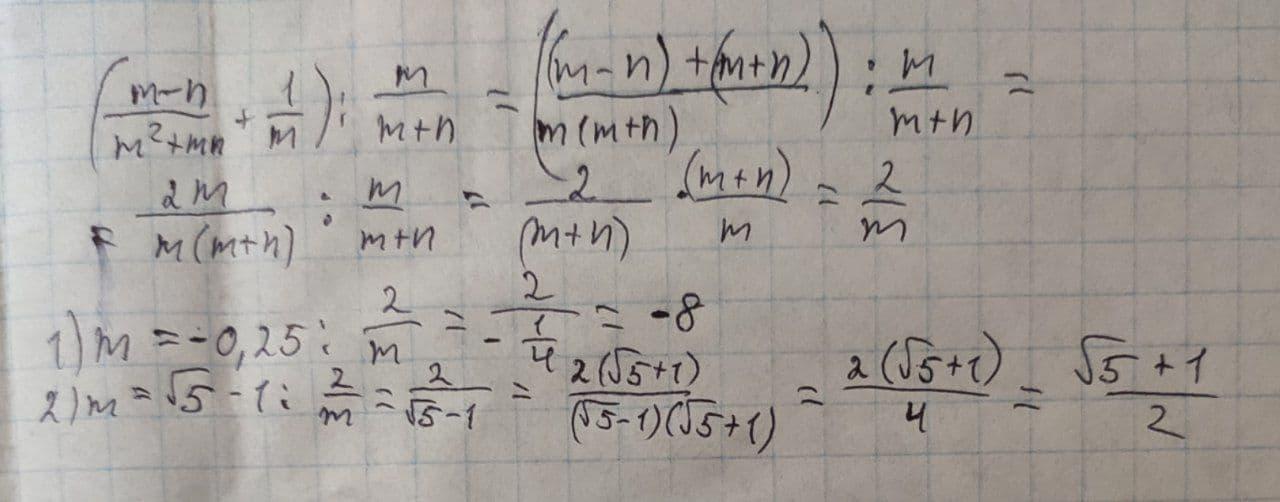 (\frac{m-n}{m^2+mn} + \frac{1}{m}) : \frac{m}{m+n} = (\frac{(m-n)+(m+n)}{m(m+n)}) : \frac{m}{m+n} =
= \frac{2m}{m(m+n)} : \frac{m}{m+n} = \frac{2}{(m+n)} \cdot \frac{(m+n)}{m} = \frac{2}{m}
1) m = -0,25 : \frac{2}{m} = \frac{2}{-\frac{1}{4}} = -8
2) m = \sqrt{5} - 1 : \frac{2}{m} = \frac{2}{\sqrt{5}-1} = \frac{2(\sqrt{5}+1)}{(\sqrt{5}-1)(\sqrt{5}+1)} = \frac{2(\sqrt{5}+1)}{4} = \frac{\sqrt{5}+1}{2}